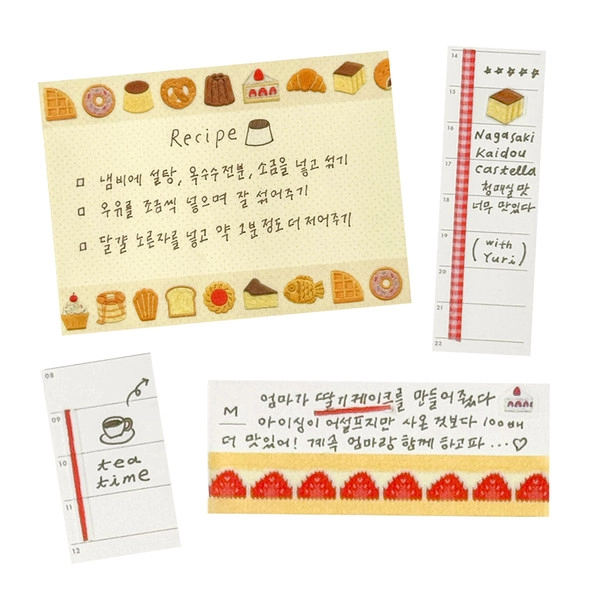 Recipe
냄비에 설탕, 옥수수전분, 소금을 넣고 섞기
우유를 조금씩 넣으며 잘 섞어주기
달걀 노른자를 넣고 약 2분정도 더 저어주기
14
15
16
17
18
19
20
21
22
Nagasaki
Kaidou
castella
청매실 맛
너무 맛있다
(with
Yuri)
08
09
10
11
12
tea
time
M
엄마가 딸기케이크를 만들어줬다
아이싱이 어설프지만 사온 것보다 100배
더 맛있어! 계속 엄마랑 함께 하고파...♡